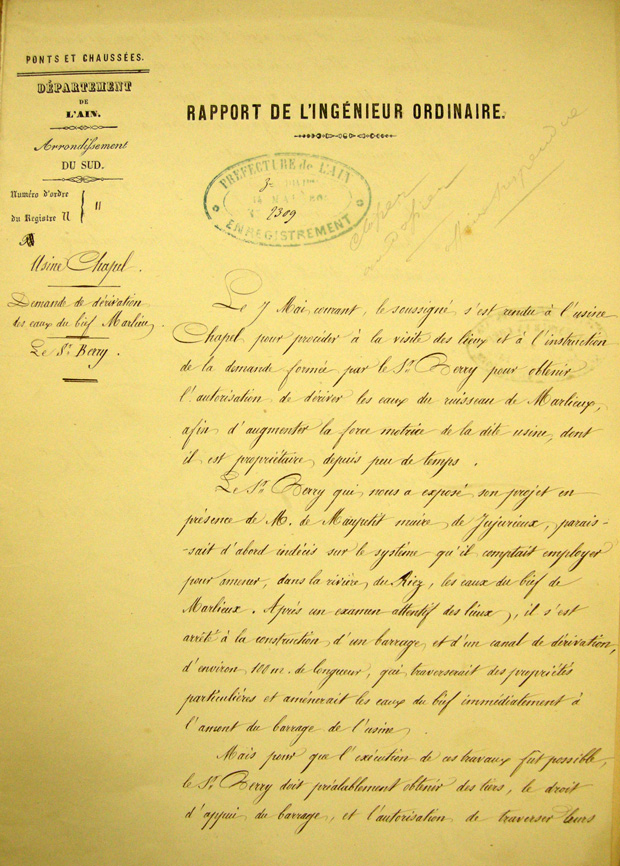 PONTS ET CHAUSSÉES.
DÉPARTEMENT
DE
L'AIN.
Arrondissement
DU SUD.
Numéro d'ordre
du Registre
"
Usine Chapel.
Demande de dérivation
des eaux du bief Marlieu
Le Sr. Berry.
RAPPORT DE L'INGÉNIEUR ORDINAIRE.
PRÉFECTURE de L'AIN
2309
ENREGISTREMENT
Le 7 Mai courant, le soussigné s'est rendu à l'usine
Chapel pour procéder à la visite des lieux et à l'instruction
de la demande formée par le Sr. Berry pour obtenir
l'autorisation de dériver les eaux du ruisseau de Marlieux,
afin d'augmenter la force motrice de la dite usine, dont
il est propriétaire depuis peu de temps.
Le Sr. Berry qui nous a exposé son projet en
présence de M. de Maupetit maire de Jujurieux, parais-
-sait d'abord indécis sur le système qu'il comptait employer
pour amener, dans la rivière du Riez, les eaux du bief de
Marlieux. Après un examen attentif des lieux, il s'est
arrêté à la construction d'un barrage et d'un canal de dérivation,
d'environ 100 m. de longueur, qui traverserait des propriétés
particulières et amènerait les eaux du bief immédiatement à
l'amont du barrage de l'usine.
Mais pour que l'exécution de ces travaux fût possible,
le Sr. Berry doit préalablement obtenir des tiers, le droit
d'appui du barrage, et l'autorisation de traverser leurs